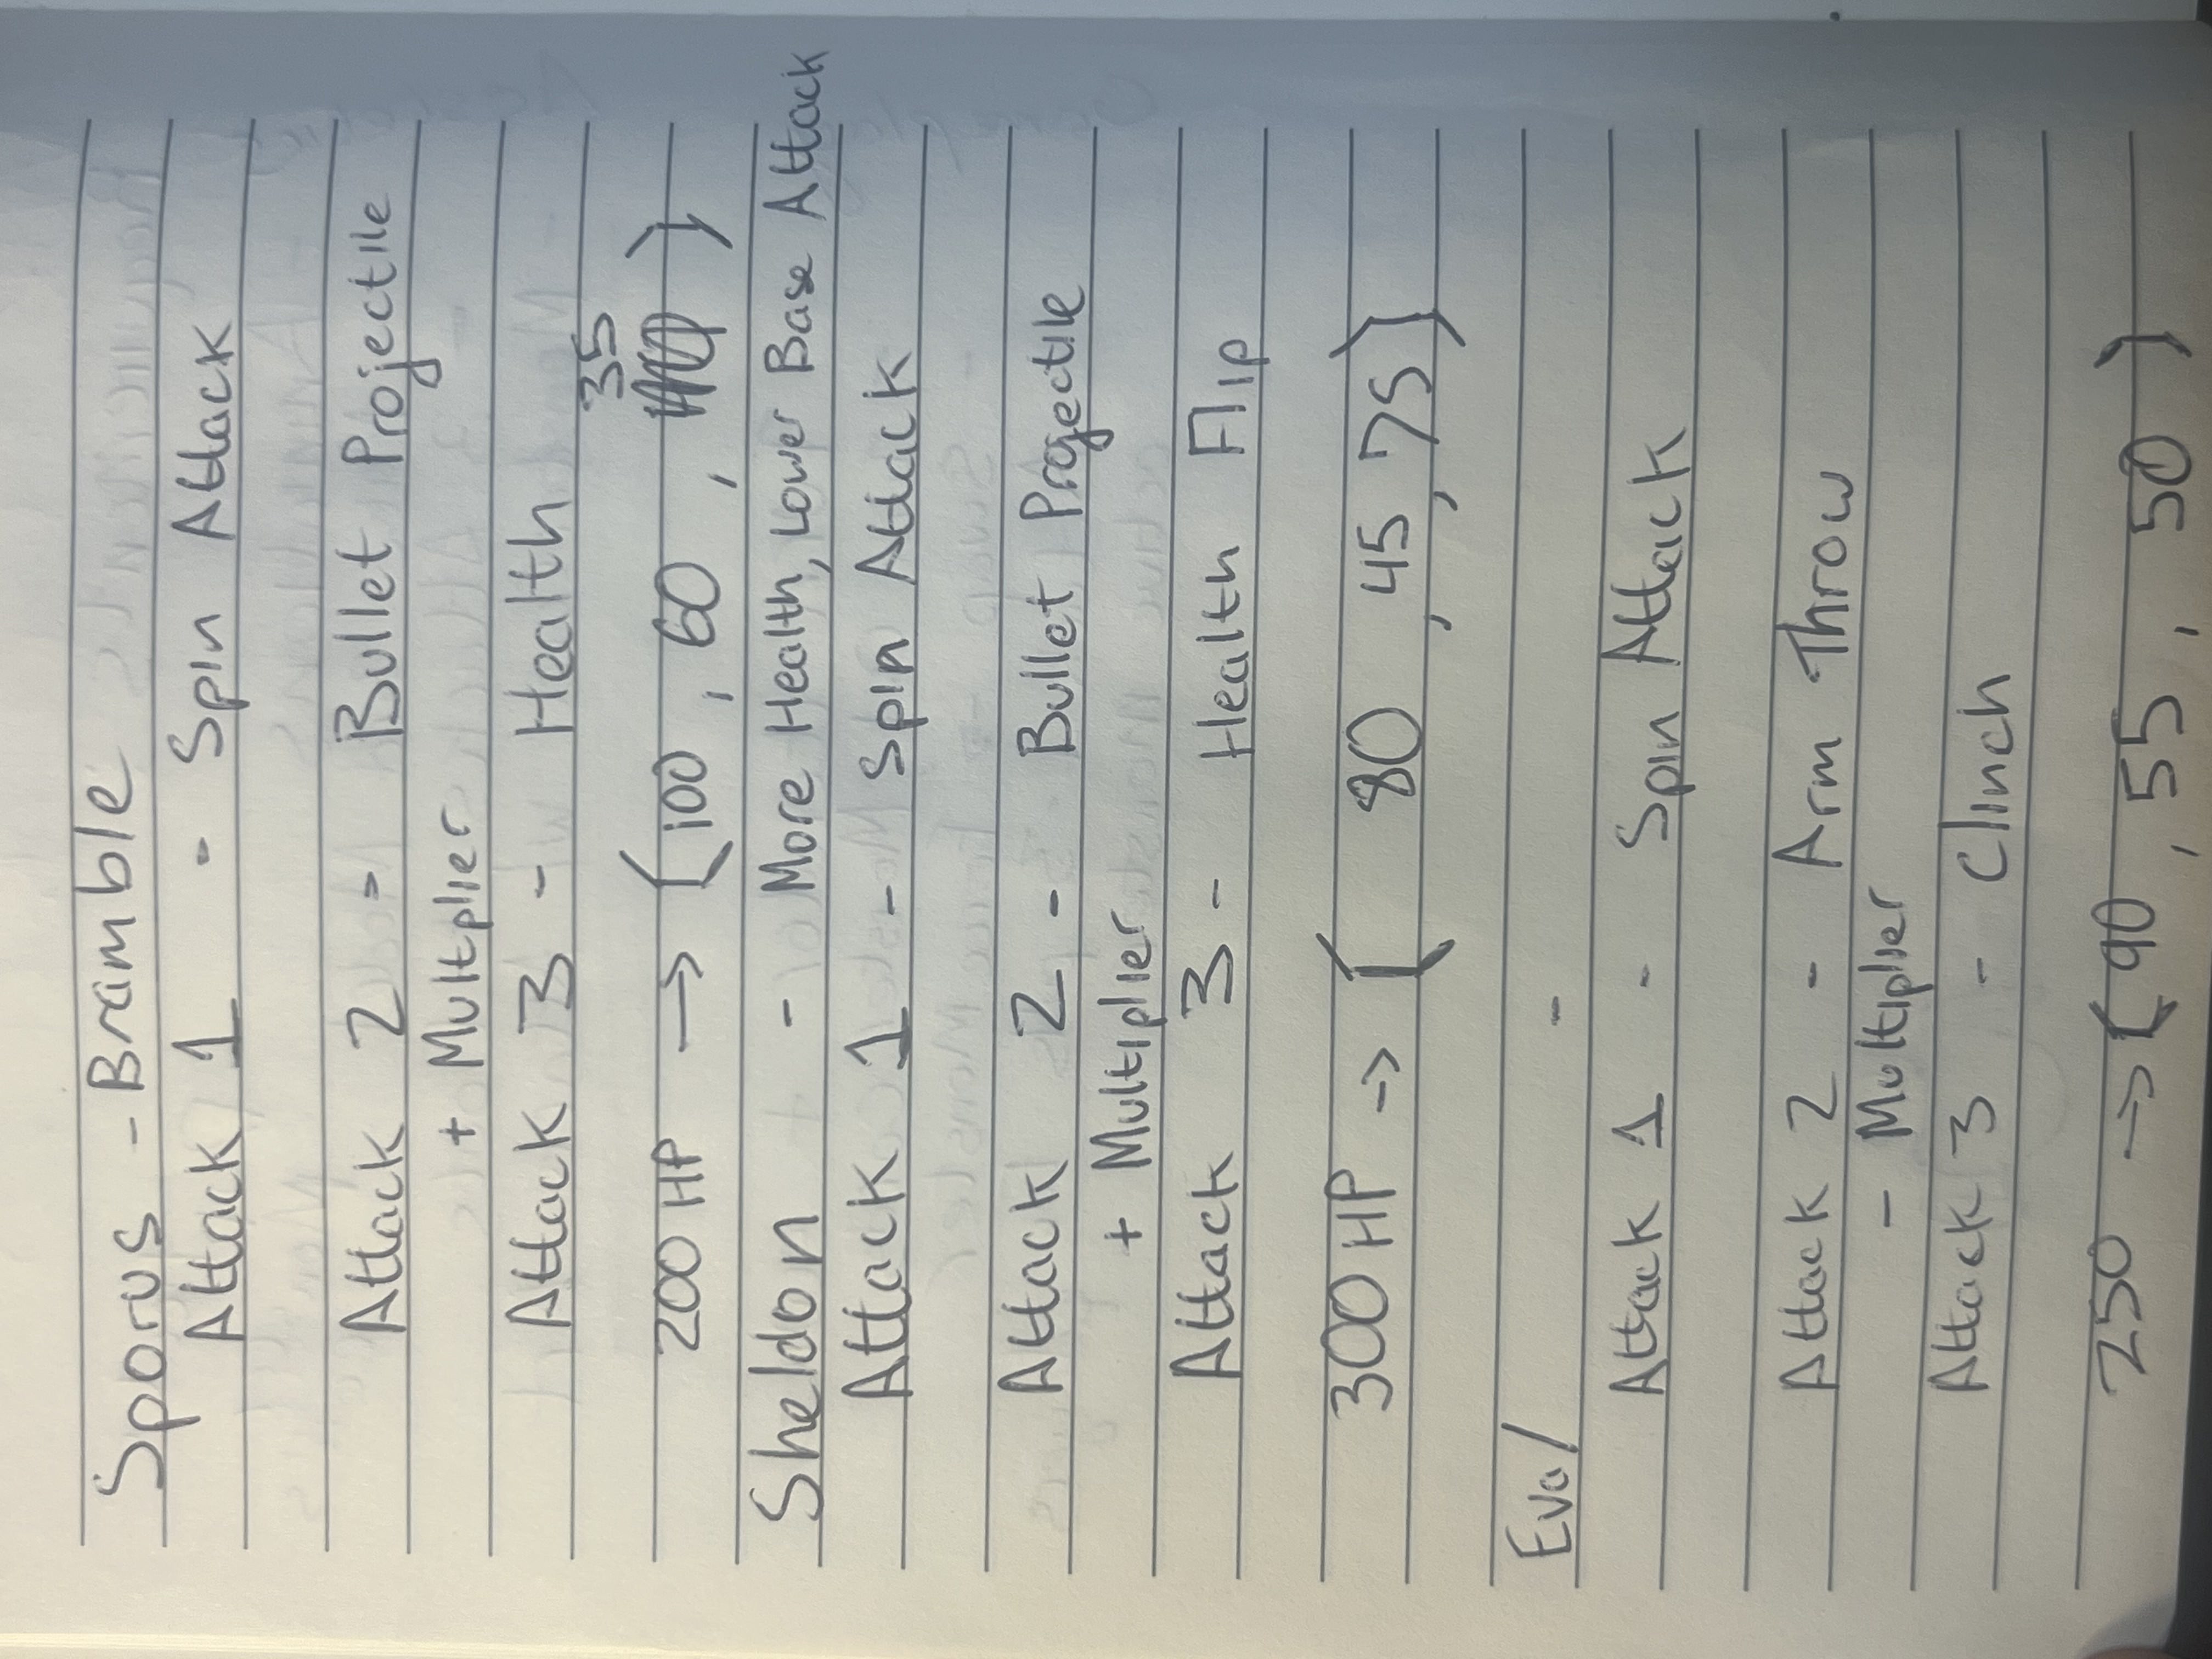 Sporus - Bramble
Attack 1 - Spin Attack
Attack 2 - Bullet Projectile
+ Multplier
Attack 3 - Health
35
200 HP → (100, 60, )
Sheldon - More Health, Lower Base Attack
Attack 1 - Spin Attack
Attack 2 - Bullet Projectile
+ Multiplier
Attack 3 - Health Flip
300 HP → ( 80, 45, 75)
Eval -
Attack 1 - Spin Attack
Attack 2 - Arm Throw
- Multiplier
Attack 3 - Clinch
250 → (90, 55, 50)